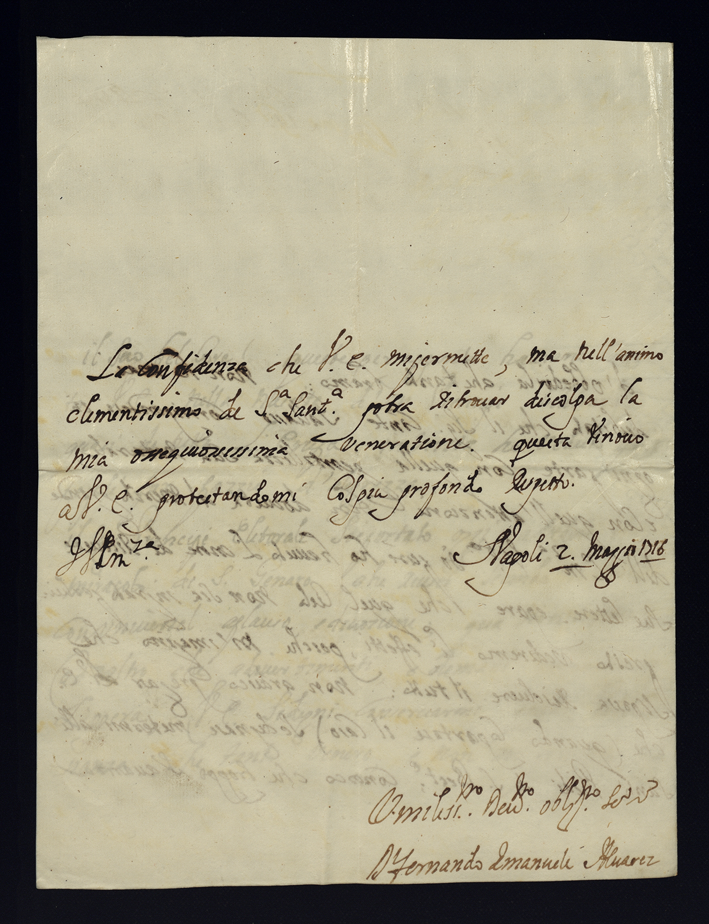 La Confidenza che V. E. mi permette, ma nell'animo
clementissimo de S.ª Sant.ª potra ritrovar discolpa la
mia ossequiosissima veneratione. questa rinovo
a V. E. protestandomi Col piu profondo rispetto.
Napoli 2. Maggio 1716
Umiliss.mo Dev.mo obl.mo Ser.r
D Fernando Emanuele Alvarez